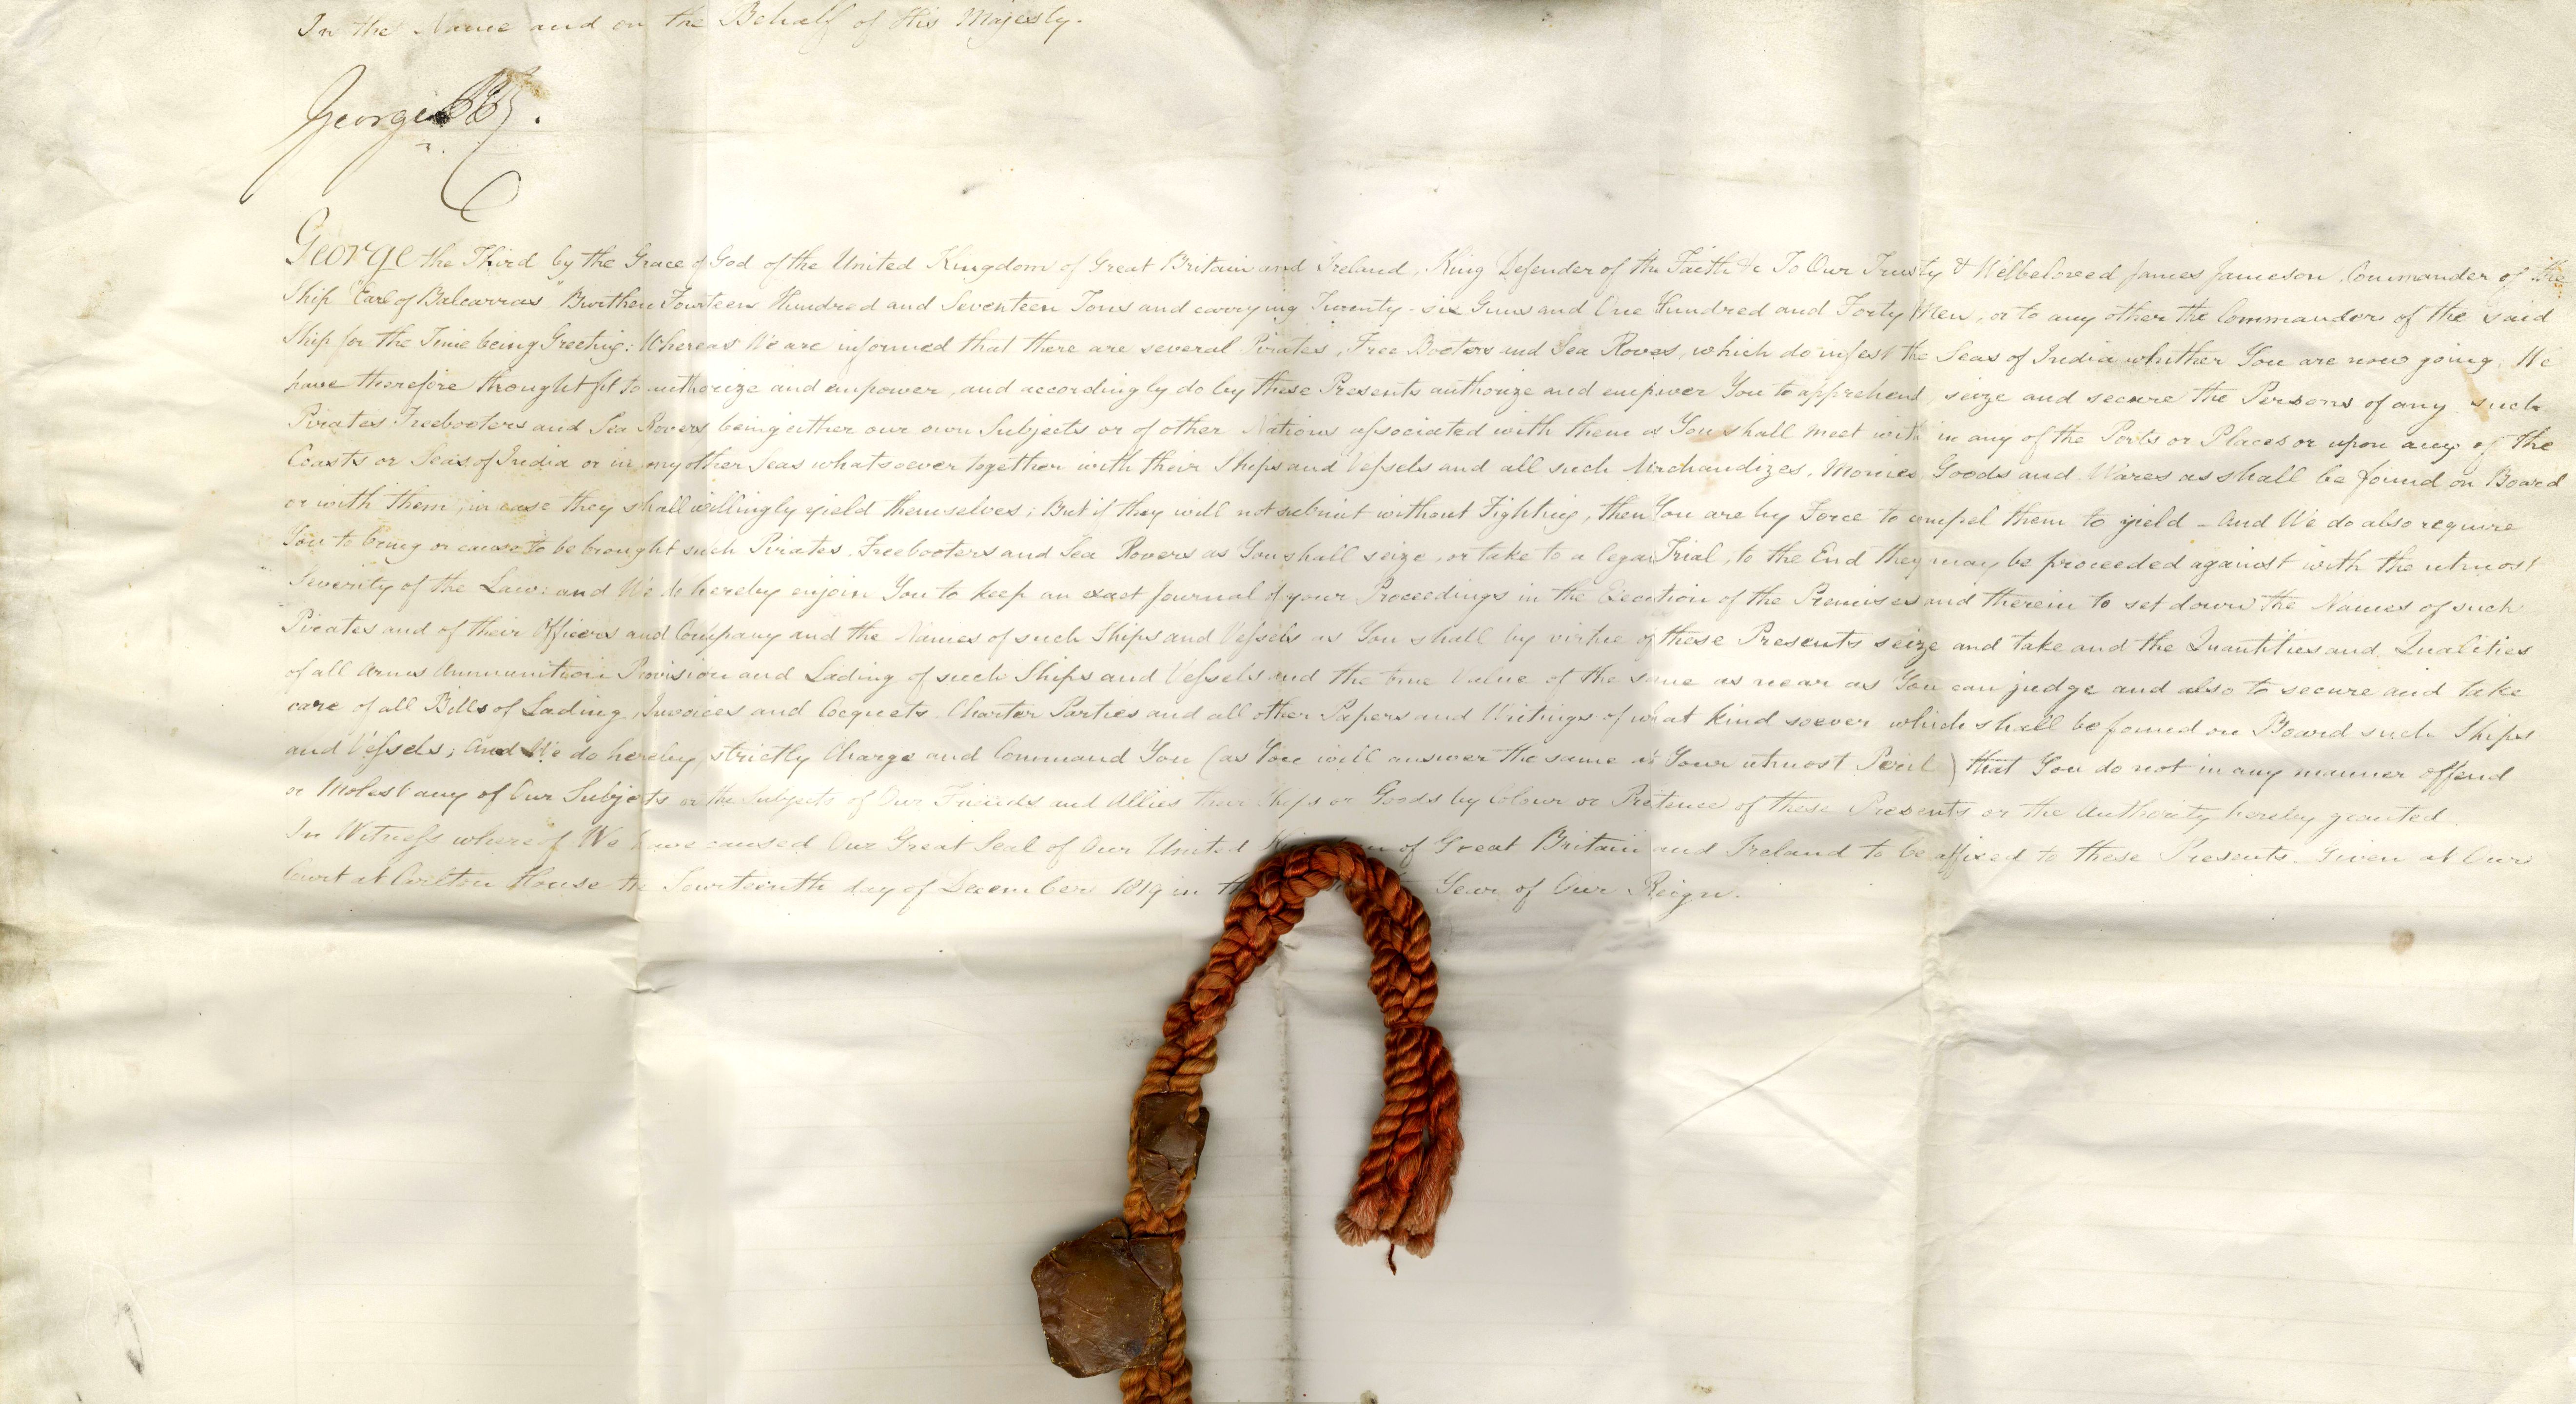 In the Name and on the Behalf of His Majesty.
George P R.
George the Third by the Grace of God of the United Kingdom of Great Britain and Ireland, King Defender of the Faith &c To Our Trusty & Welbeloved James Jameson, Commander of the
Ship "Earl of Balcarras" Burthen Fourteen Hundred and Seventeen Tons and carrying Twenty-six Guns and One Hundred and Forty Men, or to any other the Commander of the said
Ship for the Time being Greeting: Whereas We are informed that there are several Pirates, Free Booters and Sea Rovers, which do infest the Seas of India whither You are now going. We
have therefore thought fit to authorize and empower, and accordingly do by these Presents authorize and empower You to apprehend, seize and secure the Persons of any such
Pirates Freebooters and Sea Rovers being either our own Subjects or of other Nations associated with them as You shall meet with in any of the Ports or Places or upon any of the
Coasts or Seas of India or in any other Seas whatsoever together with their Ships and Vessels and all such Merchandizes, Monies, Goods and Wares as shall be found on Board
or with them, in case they shall willingly yield themselves; But if they will not submit without Fighting, then You are by Force to compel them to yield - And We do also require
You to bring or cause to be brought such Pirates, Freebooters and Sea Rovers as You shall seize, or take to a legal Trial, to the End they may be proceeded against with the utmost
Severity of the Law: and We do hereby enjoin You to keep an exact Journal of your Proceedings in the Execution of the Premises and therein to set down the Names of such
Pirates and of their Officers and Company and the Names of such Ships and Vessels as You shall by virtue of these Presents seize and take and the Quantities and Qualities
of all Arms Ammunition Provision and Lading of such Ships and Vessels and the true Value of the same as near as You can judge and also to secure and take
care of all Bills of Lading, Invoices and Cocquets Charter Parties and all other Papers and Writings of what kind soever which shall be found on Board such Ships
and Vessels; And We do hereby strictly Charge and Command You (as You will answer the same at Your utmost Peril) that You do not in any manner offend
or Molest any of Our Subjects or the Subjects of Our Friends and Allies their Ships or Goods by Colour or Pretence of these Presents or the Authority hereby granted.
In Witness whereof We have caused Our Great Seal of Our United of Great Britain and Ireland to be affixed to these Presents. Given at Our
Court at Carlton House the Fourteenth day of December 1819 in Year of Our Reign.